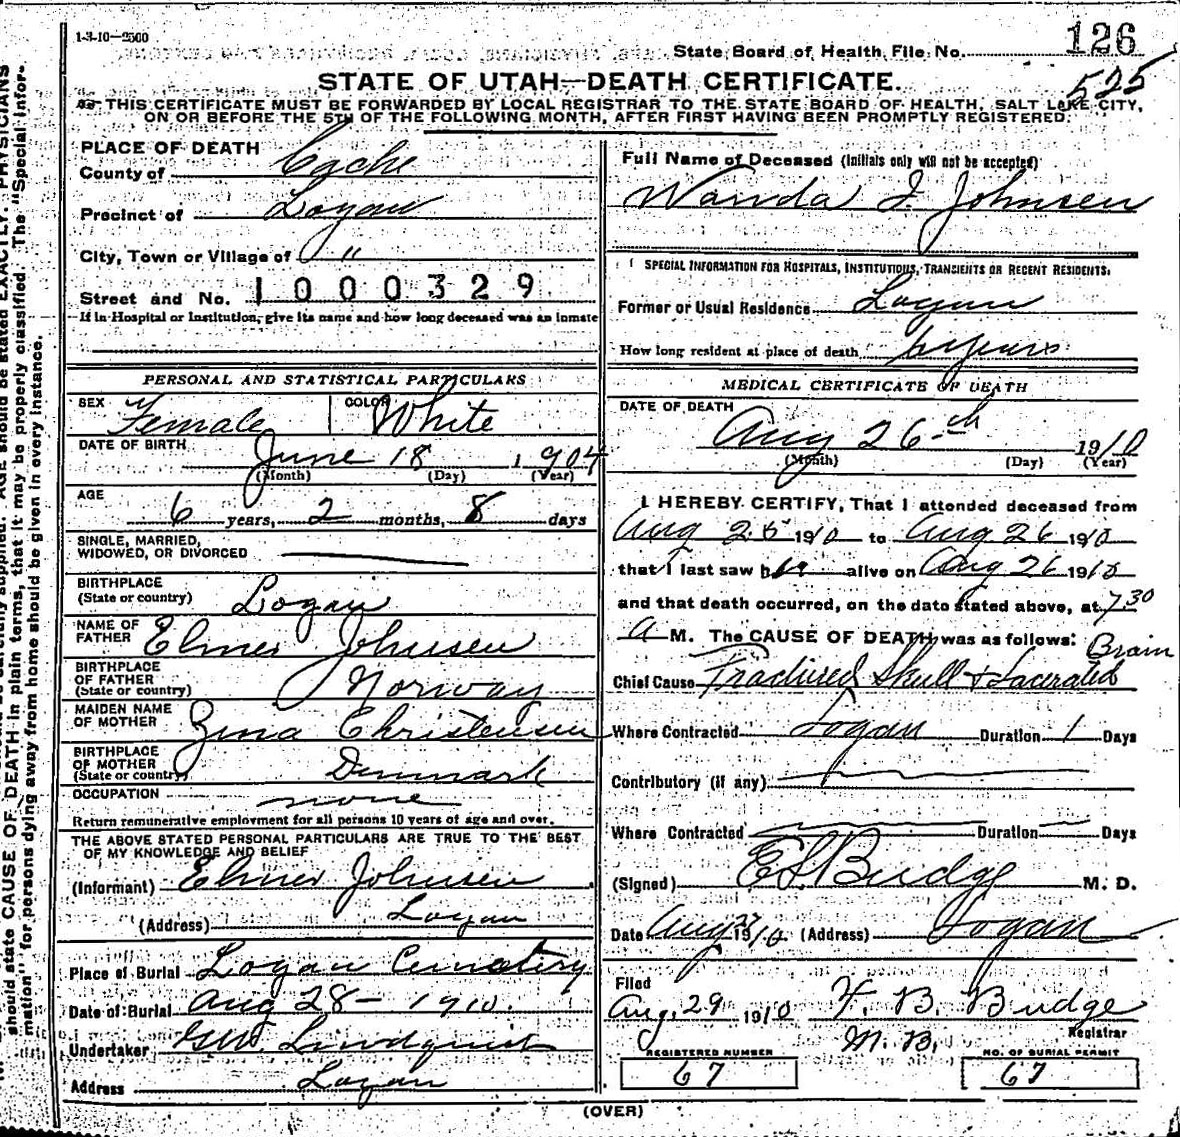 1-3-10—2500
State Board of Health, File No. 126
525
STATE OF UTAH—DEATH CERTIFICATE.
THIS CERTIFICATE MUST BE FORWARDED BY LOCAL REGISTRAR TO THE STATE BOARD OF HEALTH, SALT LAKE CITY,
ON OR BEFORE THE 5TH OF THE FOLLOWING MONTH, AFTER FIRST HAVING BEEN PROMPTLY REGISTERED.
PLACE OF DEATH
County of Cache
Precinct of Logan
City, Town or Village of "
Street and No. 1000329
If in Hospital or Institution, give its name and how long deceased was an inmate
PERSONAL AND STATISTICAL PARTICULARS
SEX Female COLOR White
DATE OF BIRTH
June 18, 1904
(Month) (Day) (Year)
AGE
6 years, 2 months, 8 days
SINGLE, MARRIED,
WIDOWED, OR DIVORCED
BIRTHPLACE
(State or country) Logan
NAME OF
FATHER Elmer Johnsen
BIRTHPLACE
OF FATHER
(State or country) Norway
MAIDEN NAME
OF MOTHER Zina Christensen
BIRTHPLACE
OF MOTHER
(State or country) Denmark
OCCUPATION none
Return remunerative employment for all persons 10 years of age and over.
THE ABOVE STATED PERSONAL PARTICULARS ARE TRUE TO THE BEST
OF MY KNOWLEDGE AND BELIEF
(Informant) Elmer Johnsen
(Address) Logan
Place of Burial Logan Cemetery
Date of Burial Aug 28 - 1910.
Undertaker Lindquist
Address Logan
Full Name of Deceased (Initials only will not be accepted)
Wanda I Johnsen
SPECIAL INFORMATION FOR HOSPITALS, INSTITUTIONS, TRANSIENTS OR RECENT RESIDENTS.
Former or Usual Residence Logan
How long resident at place of death 6 years
MEDICAL CERTIFICATE OF DEATH
DATE OF DEATH
Aug 26th 1910
(Month) (Day) (Year)
I HEREBY CERTIFY, That I attended deceased from
Aug 25 1910 to Aug 26 1910
that I last saw her alive on Aug 26 1910
and that death occurred, on the date stated above, at 7 30
A M. The CAUSE OF DEATH was as follows: Brain
Chief Cause Fractured Skull & Lacerated
Where Contracted Logan Duration 1 Days
Contributory (if any)
Where Contracted Duration Days
(Signed) Budge M. D.
Date Aug 27 1910 (Address) Logan
Filed
Aug. 29 1910 F. B. Budge
Registrar
REGISTERED NUMBER
67
NO. OF BURIAL PERMIT
67
(OVER)
should state CAUSE OF DEATH in plain terms, that it may be properly classified. The "Special Infor-
mation" for persons dying away from home should be given in every instance.